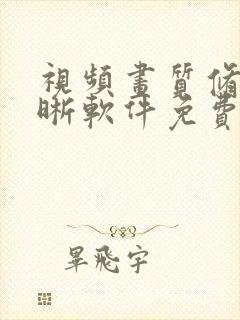 視頻畫質脩
晰軟件免費
畢飛宇